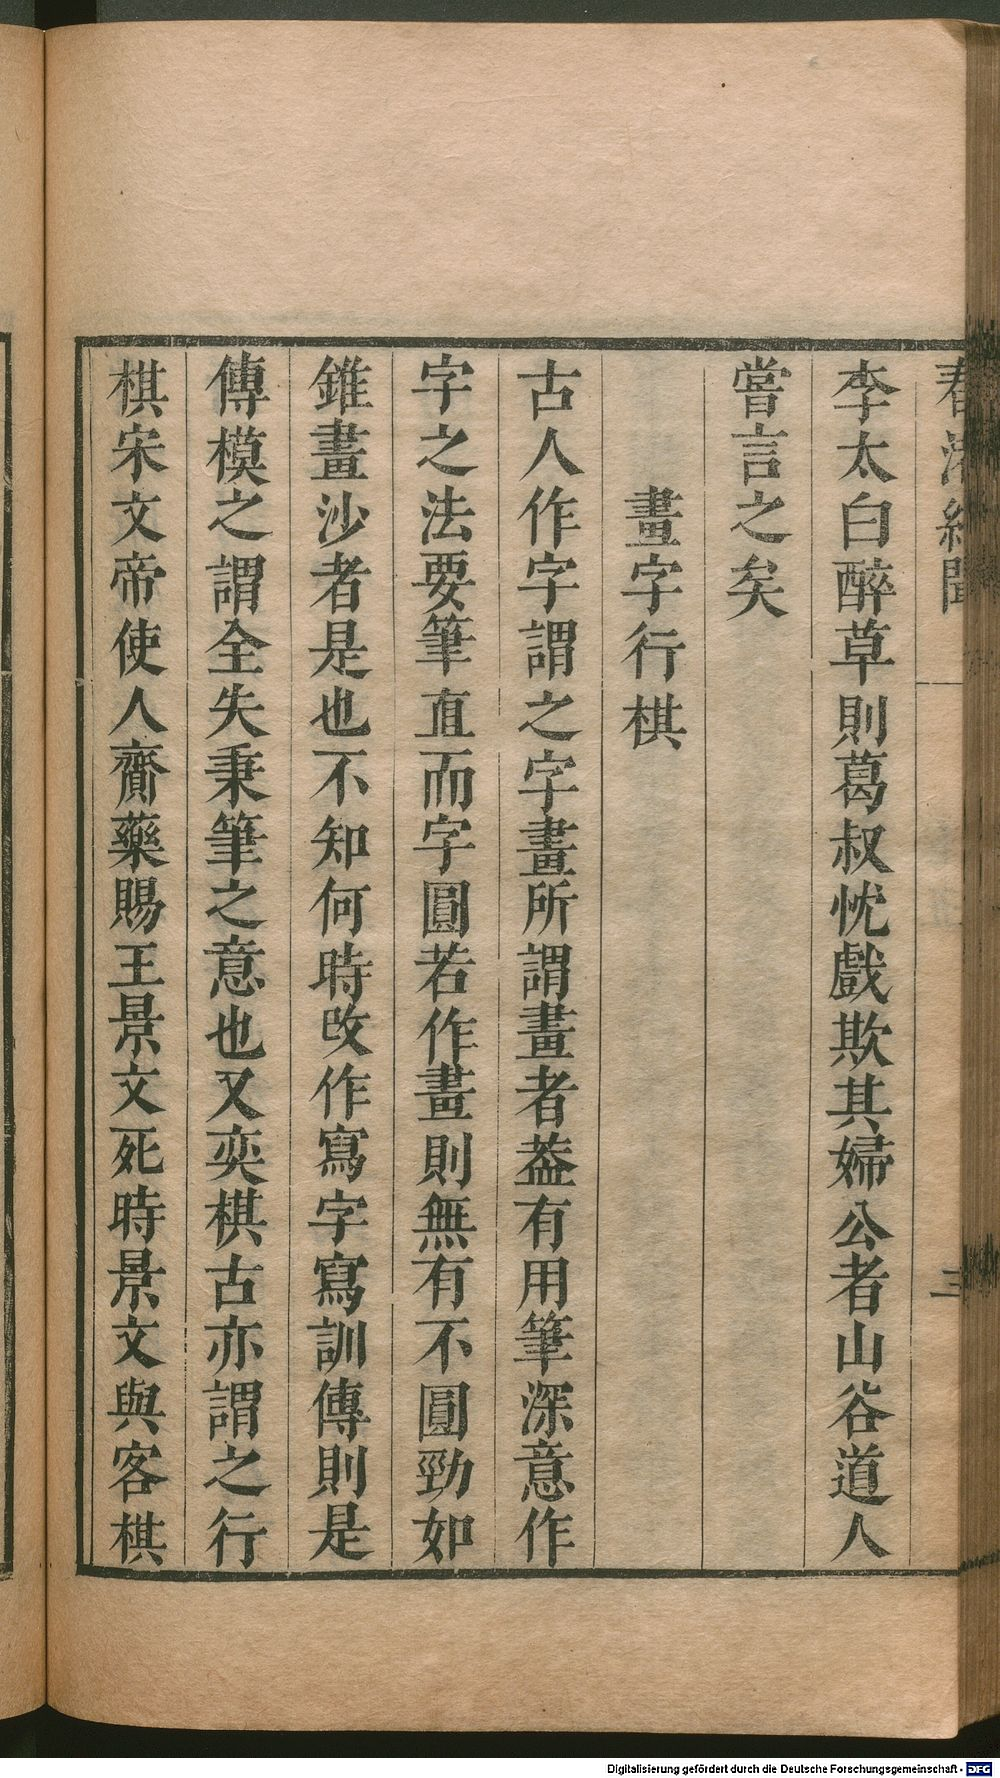 春渚紀聞 三
李太白醉草則葛叔忱戲欺其婦公者山谷道人
嘗言之矣
畫字行棋
古人作字謂之字畫所謂畫者葢有用筆深意作
字之法要筆直而字圓若作畫則無有不圓勁如
錐畫沙者是也不知何時改作寫字寫訓傳則是
傳模之謂全失秉筆之意也又奕棋古亦謂之行
棋宋文帝使人齎藥賜王景文死時景文與客棋
Digitalisierung gefördert durch die Deutsche Forschungsgemeinschaft - DFG